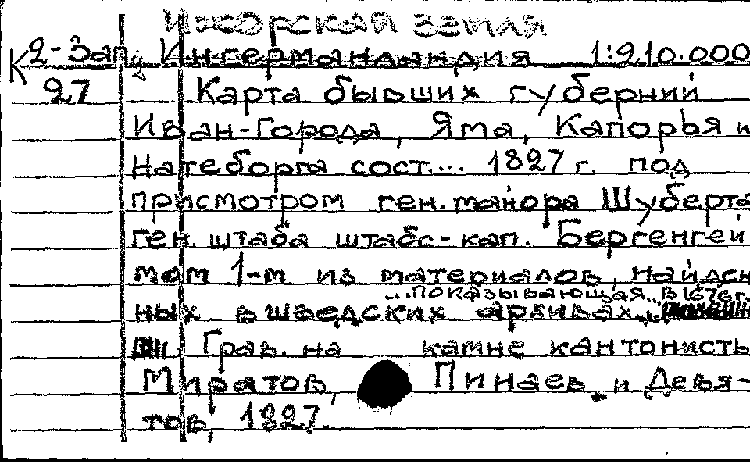 Ижорская земля
К 2-Зап Ингерманландия 1:210.000
27 Карта бывших губерний
Иван-Города, Яма, Капорья и
Натеборга сост... 1827 г. под
присмотром ген. майора Шуберта
ген. штаба штабс-кап. Бергенгей
мом 1-м из материалов, найден
...показывающая.. в 1676 г.
ных в шведских архивах
Грав. на камне кантонисты
Муратов, Пинаев и Девя-
тов, 1827.